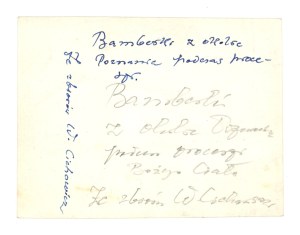 Bamberki z okolic
Poznania podczas proce-
sji.
Bamberki
z okolic Poznania
podczas procesji
Bożego Ciała
Ze zbiorów W Cichowicz
Ze zbiorów W Cichowicz